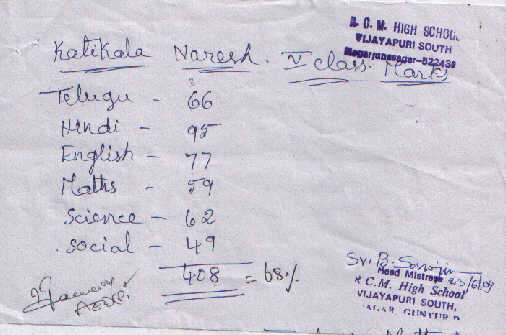 R. C. M. HIGH SCHOOL
VIJAYAPURI SOUTH
Nagarjunasagar-522439
Katikala Naresh. V class Marks
Telugu - 66
Hindi - 95
English - 77
Maths - 59
Science - 62
social - 49
408 = 68%
Sr. B.
Head Mistress 23/6/09
R C.M. High School
VIJAYAPURI SOUTH,
GUNTUR D